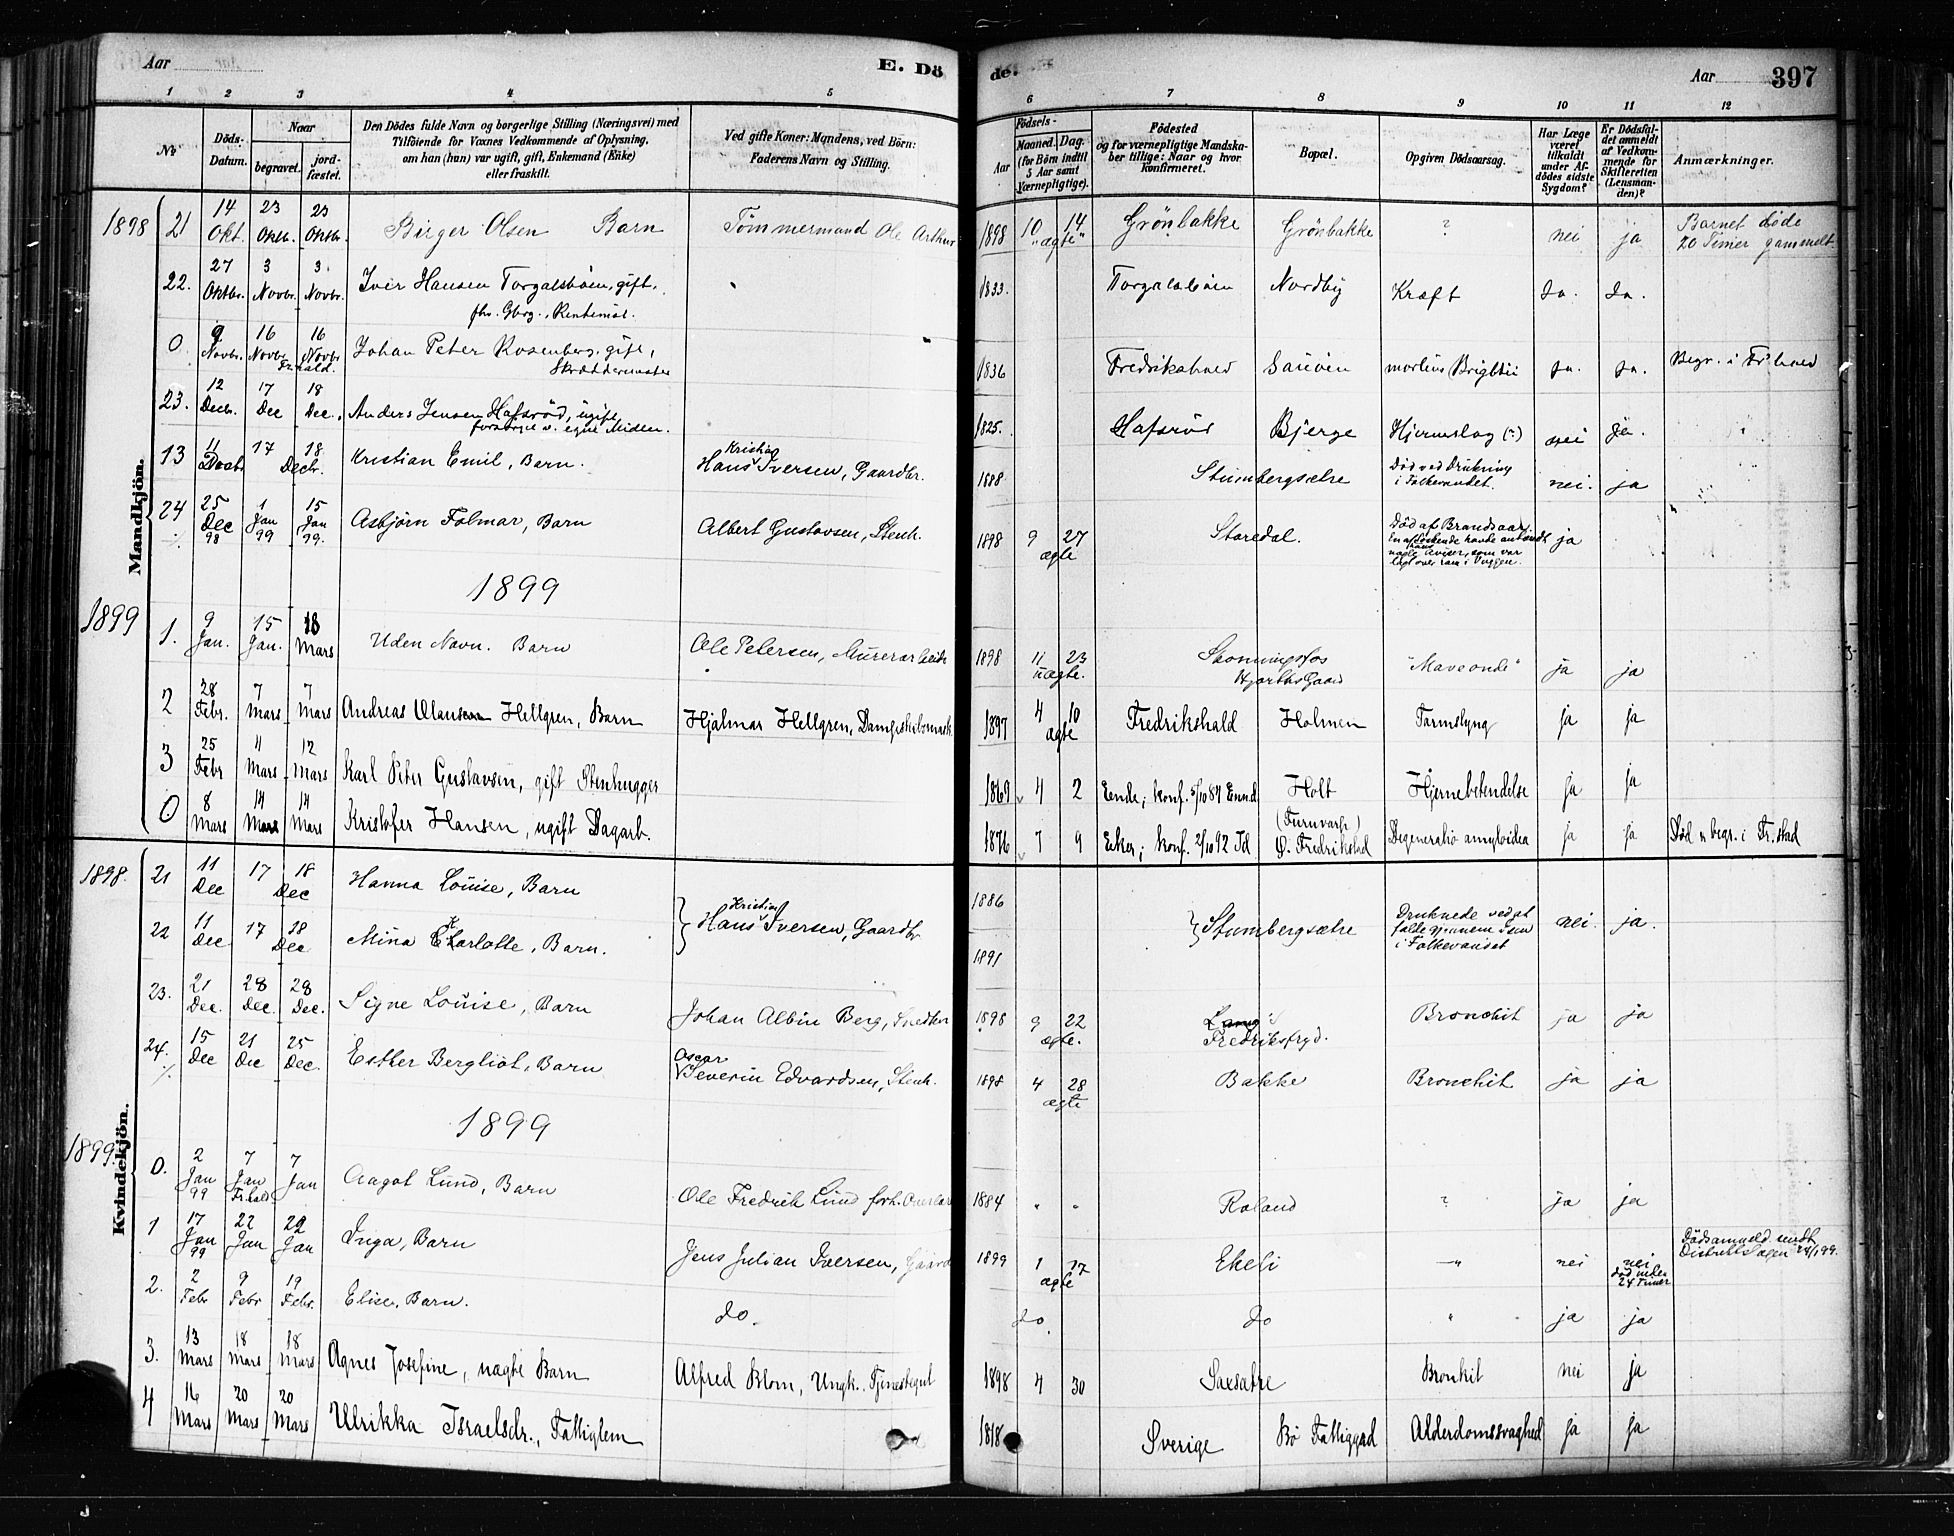 Aar
E. Dö
de.
Aar
397
1 2 3 4 5 6 7 8 9 10 11 12
Nr.
Döds-Datum.
Naar
begravet.
jord-fæstet.
Den Dödes fulde Navn og borgerlige Stilling (Næringsvei) med
Tilföiende for Voxnes Vedkommende af Oplysning,
om han (hun) var ugift, gift, Enkemand (Enke)
eller fraskilt.
Ved gifte Koner: Mandens, ved Börn:
Faderens Navn og Stilling.
Födsels-
Aar
Maaned. Dag.
(for Börn indtil
5 Aar samt
Værnepligtige).
Födested
og for værnepligtige Mandska-
ber tillige: Naar og hvor
konfirmeret.
Bopæl.
Opgiven Dödsaarsag.
Har Læge
været
tilkaldt
under Af-
dödes sidste
Sygdom?
Er Dödsfal-
det anmeldt
af Vedkom-
mende for
Skifteretten
(Lensman-
den)?
Anmærkninger.
Mandkjön.
1898 21 14 Okt. 23 Oktb. 23 Oktb. Birger Olsen Barn Tömmermand Ole Arthur 1898 10 14 "ægte" Grönbakke Grönbakke ? nei ja Barnet döde 20 Timer gammelt.
22. 27 Oktbr. 3 Novbr. 3. Novbr. Iver Hansen Torgalsböen, gift, 1833. Nordby Kræft Ja. Ja.
0 9 Novbr. 16 Novbr. 16 Novbr. Johan Peter Rosenberg, gift, 1836 Fredrikshald Ja. Ja. Begr. i Fr'hald
23. 12 Decbr. 17 Dec 18 Dec. Anders Jensen Hafsröd, ugift, 1825. Hafsröd Bjerge Hjerneslag (?) nei ja.
13 11 Decbr. 17 18 Decbr. Kristian Emil, Barn. Hans Kristian Iversen, Gaardbr. 1888 Stumbergsætre Död ved Drukning i Folkevandet. nei. ja
24 25 Dec 98 1 Jan 99 15 Jan 99. Asbjørn Folmar, Barn Albert Gustavsen, Stenh. 1898 9 27 ægte Staredal. Död af Brandsaar. ja
1899
1899 1. 9 Jan. 15 Jan. 18 Mars Uden Navn. Barn Ole Petersen, Murerarbeid 1898 11 23 uægte. Skonningsfos "Maveonde" ja ja
2 28 Febr. 7 Mars 7 Mars Andreas Hellgren, Barn Hjalmar Hellgren, 1897 4 10 ægte Fredrikshald Holmen Tarmslyng ja ja
3 25 Febr 11 Mars 12 Mars Karl Peter Gustavsen, gift Stenhugger 1869 4 2 Holt Hjernebetendelse ja ja
0 8 Mars 14 Mars 14 Mars Kristofer Hansen, ugift Dagarb. 1876 7 9 Ö. Fredrikstad Degeneratio amyloidea ja ja Död & begr. i Fr.stad
Kvindekjön.
1898. 21 11 Dec 17 18 Dec Hanna Louise, Barn Hans Kristian Iversen, Gaardbr 1886 Stumbergsætre Druknede ved at falde gjennem isen i Folkevandet nei. ja.
22 11 Dec 17 18 Dec Mina Karlotte, Barn. 1891
23. 21 Dec. 28 Dec. 28 Dec. Signe Louise, Barn Johan Albin Berg, Snedker 1898 9 22 ægte. Fredriksfryd. Bronchit ja ja
24. 15 Dec 21 Dec 25 Dec. Esther Bergliot, Barn Oscar Severin Edvardsen, Stenh. 1898 4 28 ægte Bakke Bronchit ja ja
1899
1899. 0. 2 Jan 99 7 Jan Fr.hald 7 Jan Aagot Lund, Barn Ole Fredrik Lund 1884 " " Roland ? ja ja
1 17 Jan 99 22 Jan 22 Jan Inga, Barn Jens Julian Iversen, Gaard 1899 1 17 ægte Ekeli " nei nei död inden 24 Timer Dödsanmeld. sendt 24/1 99.
2. 2 Febr 9 Febr 19 Febr. Elise, Barn. do. do. do " ja ja
3. 13 Mars 18 Mars 18 Mars Agnes Josefine, uægte Barn Alfred Blom, Ungk., Tjenestegut 1898 4 30 Saxsætre Bronkit nei ja
4 16 Mars 20 Mars 20 Mars Ulrikka Israelsdr., Fattiglem 1818 Sverige Bö Fattiggaard Alderdomssvaghed ja ja